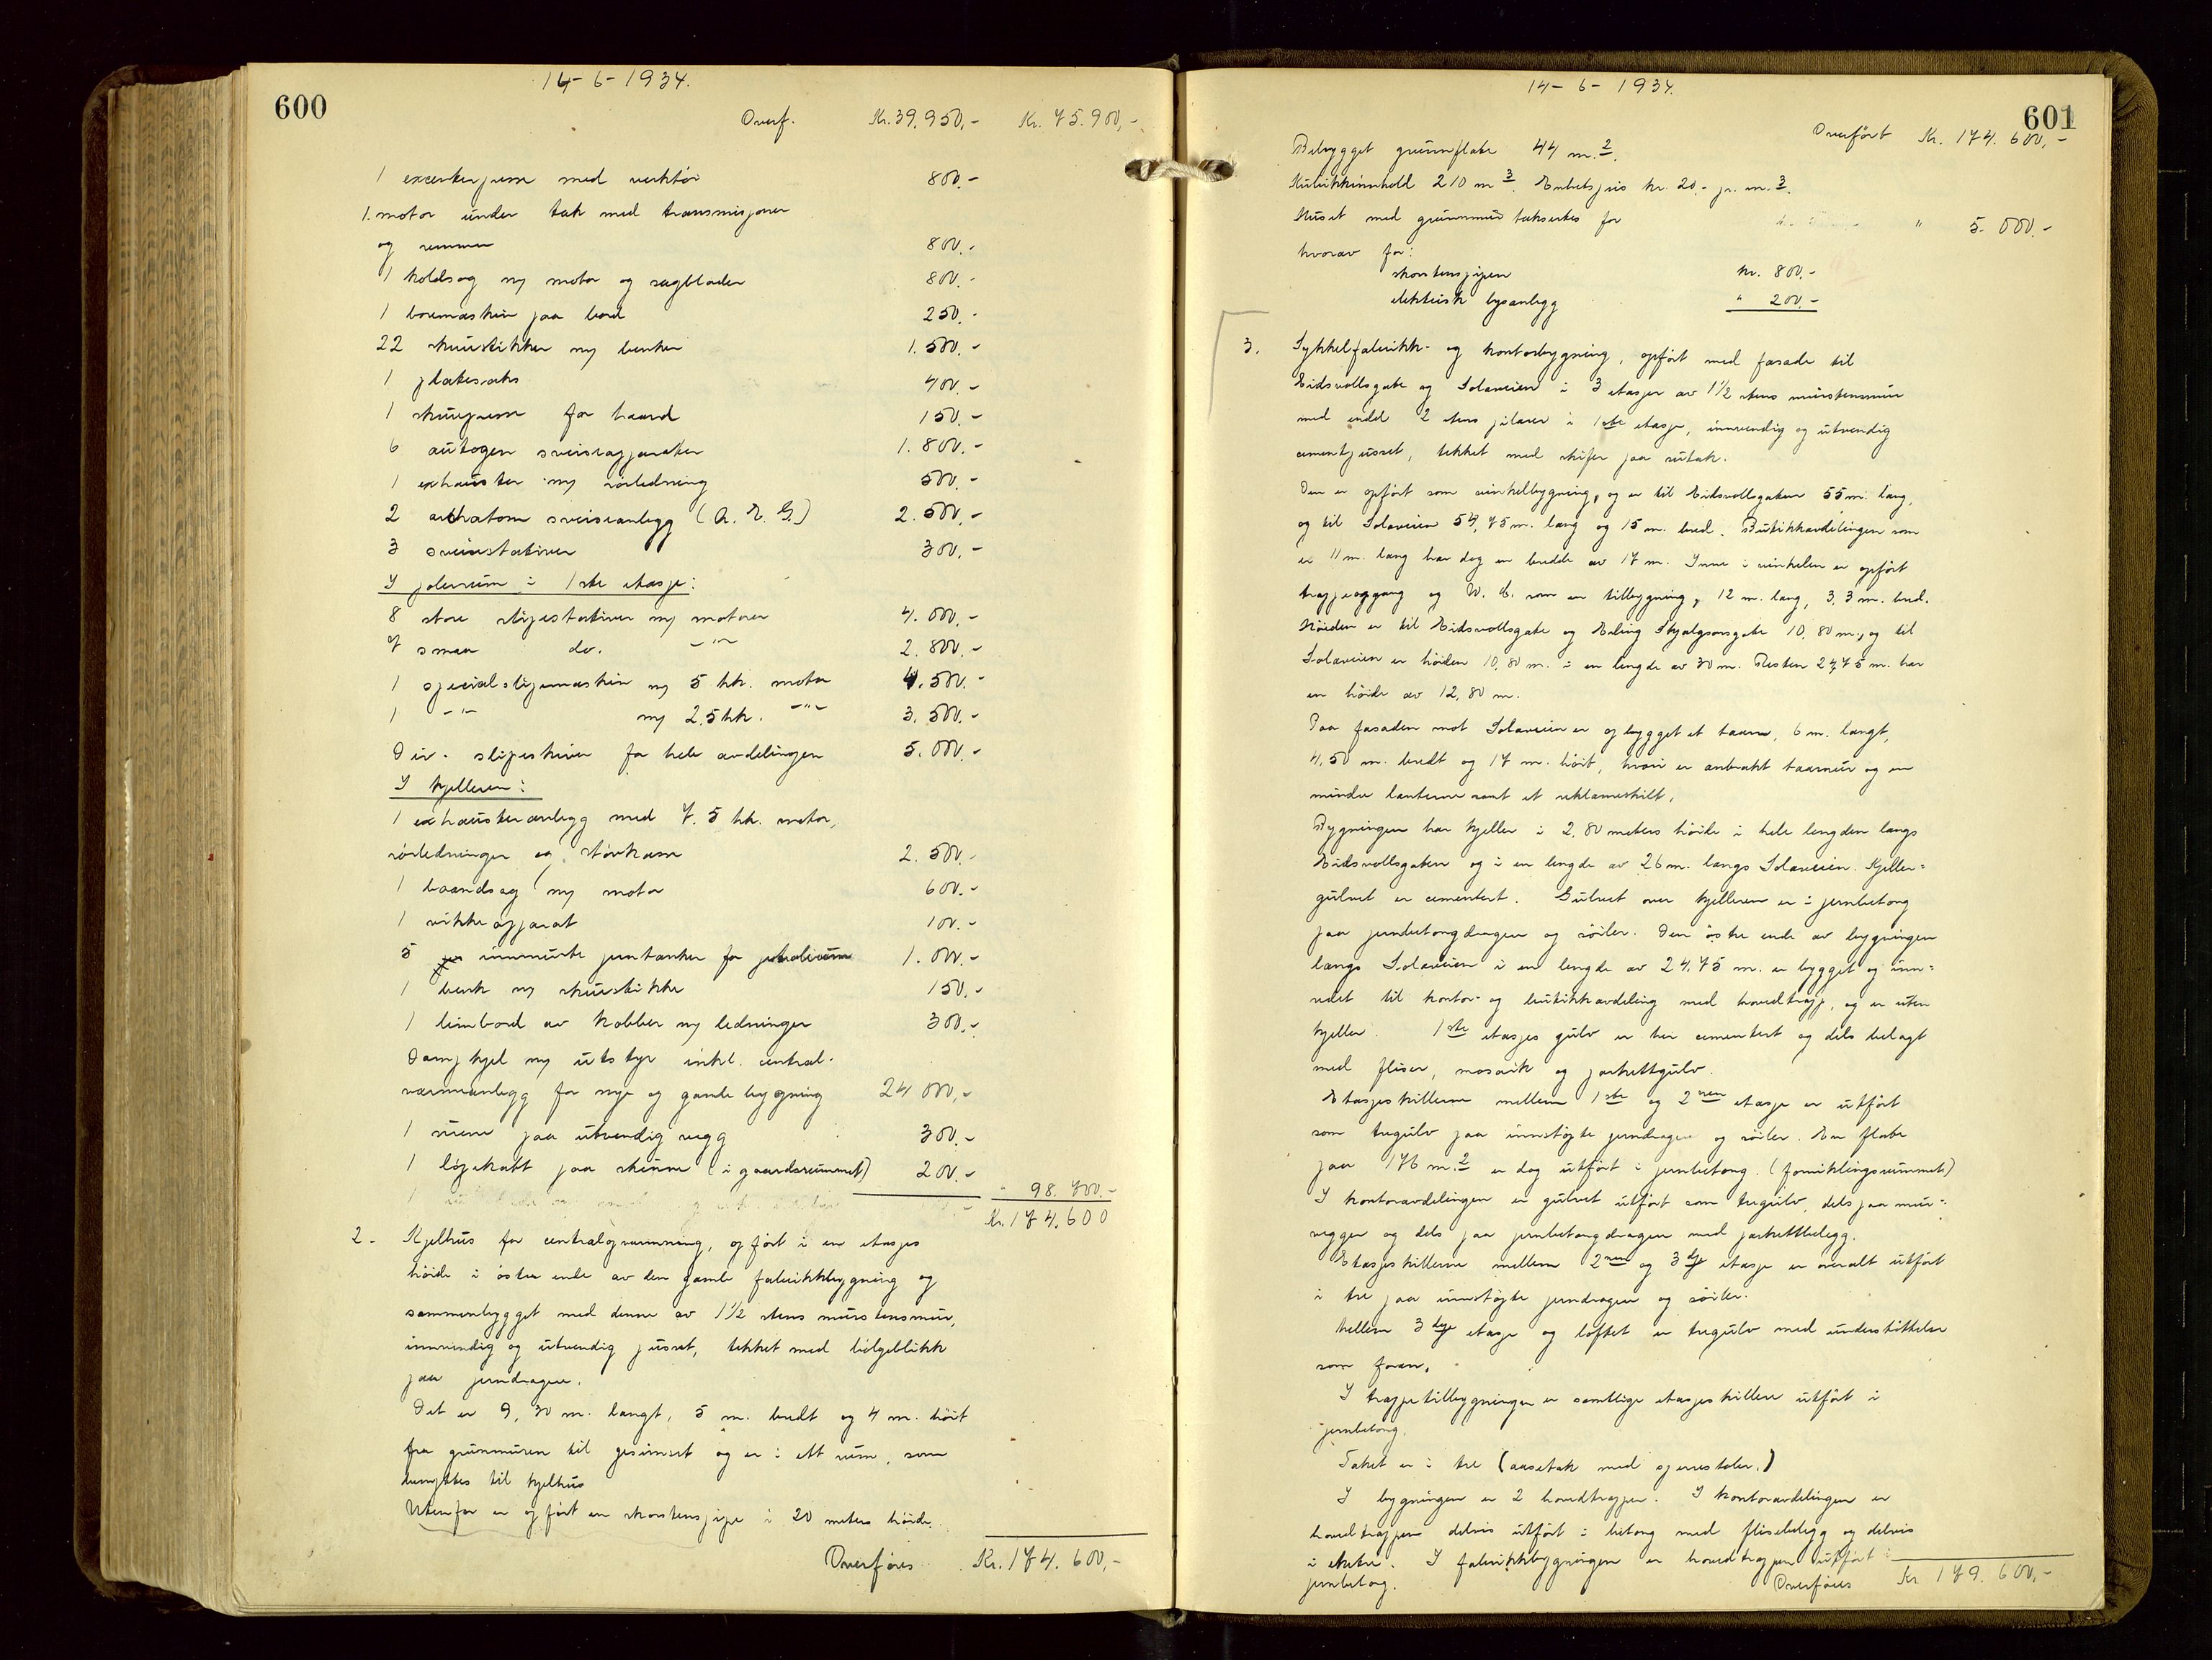 600
14-6-1934.
Overf. Kr. 39.950,- Kr. 75.900,-
1 excenterpresse med verktøi 800.-
1 motor under tak med transmisjoner
og remmer 800.-
1 koldsag m/ motor og sagblader 800.-
1 boremaskin paa bord 250.-
22 skruestikker m/ benker 1.500.-
1 platesaks 400.-
1 skruepresse for haand 150.-
6 autogen sveiseapparater 1.800.-
1 exhauster m/ rørledning 500.-
2 arcatom sveiseanlegg (A. E. G.) 2.500.-
3 sveisestativer 300.-
I polerrum i 1ste etasje:
8 store slipestativer m/ motorer 4.000.-
7 smaa do. -"- 2.800.-
1 specialslipemaskin m/ 5 hk. motor 4.500.-
1 -"- m/ 2.5 hk. -"- 3.500.-
Div. slipeskiver for hele avdelingen 5.000.-
I kjelleren:
1 exhausteranlegg med 7.5 hk. motor,
rørledninger og støvkasse 2.500.-
1 baandsag m/ motor 600.-
1 vikkeapparat 100.-
5 innmurte jerntanker for petroleum 1.000.-
1 benk m/ skruestikke 150.-
1 limbord av kobber m/ ledninger 300.-
Dampkjel m/ utstyr inkl. central-
varmeanlegg for nye og gamle bygning 24 000,-
1 sirene paa utvendig vegg 300.-
1 løpekatt paa skinne (i gaardsrummet) 200.-
" 98.700.-
Kr. 174.600
2- Kjelhus for centralopvarmning, opført i en etasjes
høide i østre ende av den gamle fabrikkbygning og
sammenbygget med denne av 1 1/2 stens murstensmur,
innvendig og utvendig pusset, tekket med bølgeblikk
paa jerndragere.
Det er 9,30 m. langt, 5 m. bredt og 4 m. høit
fra grunmuren til gesimset og er i ett rum, som
benyttes til kjelhus
Utenfor er opført en skorstenspipe i 20 meters høide.
Overføres Kr. 174.600,-
14-6-1934.
601
Overført Kr. 174.600,-
Bebygget grunnflate 44 m.2.
Kubikkinnhold 210 m3. Enhetspris kr. 20,- pr. m.3.
Huset med grunnmur takseres for " 5.000.-
hvorav for:
skorstenspipen kr. 800.-
elektrisk lysanlegg " 200.-
3. Sykkelfabrikk- og kontorbygning, opført med fasade til
Eidsvollsgate og Solaveien i 3 etasjer av 1 1/2 stens murstensmur
med endel 2 stens pilarer i 1ste etasje, innvendig og utvendig
cementpusset, tekket med skifer paa sutak.
Den er opført som vinkelbygning, og er til Eidsvollsgaten 55 m. lang,
og til Solaveien 54,75 m. lang og 15 m. bred. Butikkavdelingen som
er 11 m. lang har dog en bredde av 17 m. Inne i vinkelen er opført
trappeopgang og W. C. som en tilbygning, 12 m. lang, 3,3 m. bred.
Høiden er til Eidsvollsgate og Erling Skjalgsonsgate 10,80 m., og til
Solaveien er høiden 10,80 m. i en lengde av 30 m. Resten 24,75 m. har
en høide av 12,80 m.
Paa fasaden mot Solaveien er opbygget et taarn, 6 m. langt,
4,50 m. bredt og 17 m. høit, hvori er anbrakt taarnur og en
mindre lanterne samt et reklameskilt.
Bygningen har kjeller i 2,80 meters høide i hele lengden langs
Eidsvollsgaten og i en lengde av 26 m. langs Solaveien. Kjeller=
gulvet er cementert. Gulvet over kjelleren er i jernbetong
paa jernbetongdragere og søiler. Den østre ende av bygningen
langs Solaveien i en lengde av 24,75 m. er bygget og inn=
redet til kontor- og butikkavdeling med hovedtrapp, og er uten
kjeller. 1ste etasjes gulv er her cementert og dels belagt
med fliser, mosaik og parkettgulv.
Etasjeskillerne mellem 1ste og 2nen etasje er utført
som tregulv paa innstøpte jerndragere og søiler. En flate
paa 176 m.2 er dog utført i jernbetong. (forniklingsrummet)
I kontoravdelingen er gulvet utført som tregulv, dels paa mur=
vegger og dels paa jernbetongdragere med parkettbelegg.
Etasjeskillerne mellem 2nen og 3dje etasje er overalt utført
i tre paa innstøpte jerndragere og søiler.
Mellem 3dje etasje og loftet er tregulv med understøttelse
som foran.
I trappetilbygningen er samtlige etasjeskillere utført i
jernbetong.
Taket er i tre (aasetak med sperrestoler.)
I bygningen er 2 hovedtrapper. I kontoravdelingen er
hovedtrappen delvis utført i betong med flisebelegg og delvis
i eketre. I fabrikkbygningen er hovedtrappen utført i
jernbetong. Overføres Kr 179.600,-